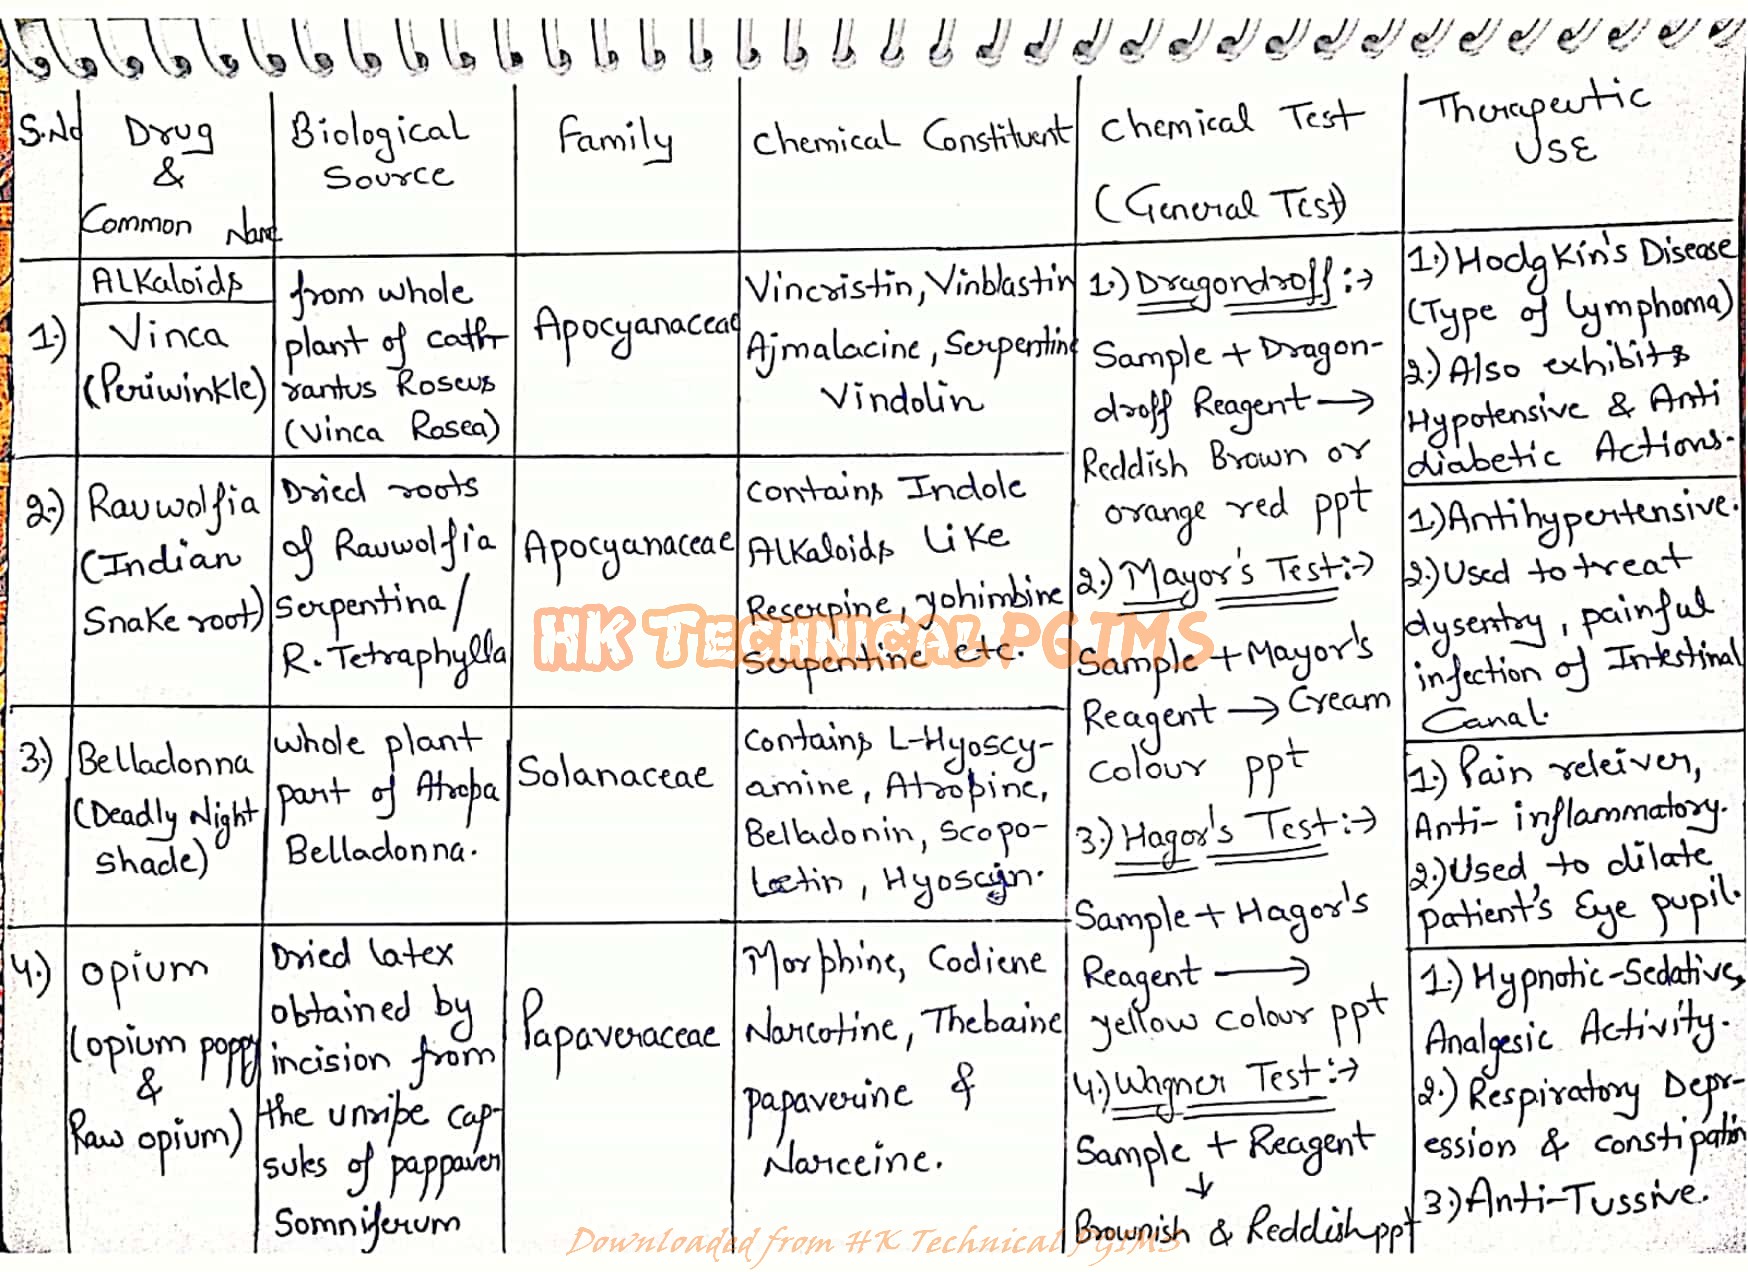 S.No
Drug
&
Common Name
Biological
Source
Family
Chemical Constituent
Chemical Test
(General Test)
Therapeutic
USE
1.)
Alkaloids
Vinca
(Periwinkle)
from whole
plant of cathr
rantus Roseus
(Vinca Rosea)
Apocyanaceae
Vincristin, Vinblastin
Ajmalacine, Serpentine
Vindolin
1.) Dragondroff :→
Sample + Dragon-
droff Reagent →
Reddish Brown or
orange red ppt
2.) Mayor's Test:→
Sample + Mayor's
Reagent → Cream
colour ppt
3.) Hagor's Test:→
Sample + Hagor's
Reagent →
yellow colour ppt
4.) Wagner Test:→
Sample + Reagent
↓
Brownish & Reddish ppt
1.) Hodgkin's Disease
(Type of lymphoma)
2.) Also exhibits
Hypotensive & Anti
diabetic Actions.
2.)
Rauwolfia
(Indian
Snake root)
Dried roots
of Rauwolfia
Serpentina/
R. Tetraphylla
Apocyanaceae
contains Indole
Alkaloids like
Reserpine, yohimbine
Serpentine etc.
1.) Antihypertensive.
2.) Used to treat
dysentry, painful
infection of Intestinal
Canal.
3.)
Belladonna
(Deadly Night
shade)
whole plant
part of Atropa
Belladonna.
Solanaceae
Contains L-Hyoscy-
amine, Atropine,
Belladonin, Scopo-
letin, Hyoscyin.
1.) Pain releiver,
Anti-inflammatory.
2.) Used to dilate
patient's Eye pupil.
4.)
opium
(opium poppy
&
Raw opium)
Dried latex
obtained by
incision from
the unripe cap-
sules of pappaver
Somniferum
Papaveraceae
Morphine, Codiene
Narcotine, Thebaine
papaverine &
Narceine.
1.) Hypnotic-Sedative,
Analgesic Activity.
2.) Respiratory Depr-
ession & constipation
3.) Anti-Tussive.
HK Technical PGIMS
Downloaded from HK Technical PGIMS